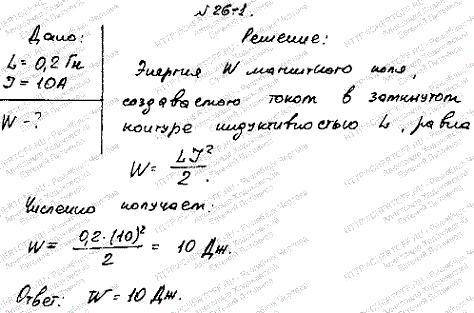 № 26-1.
Дано:
L = 0,2 Гн
I = 10А
W - ?
Решение:
Энергия W магнитного поля,
создаваемого током в замкнутом
контуре индуктивностью L, равна
W = LI²/2.
Численно получаем:
W = 0,2·(10)²/2 = 10 Дж.
Ответ: W = 10 Дж.